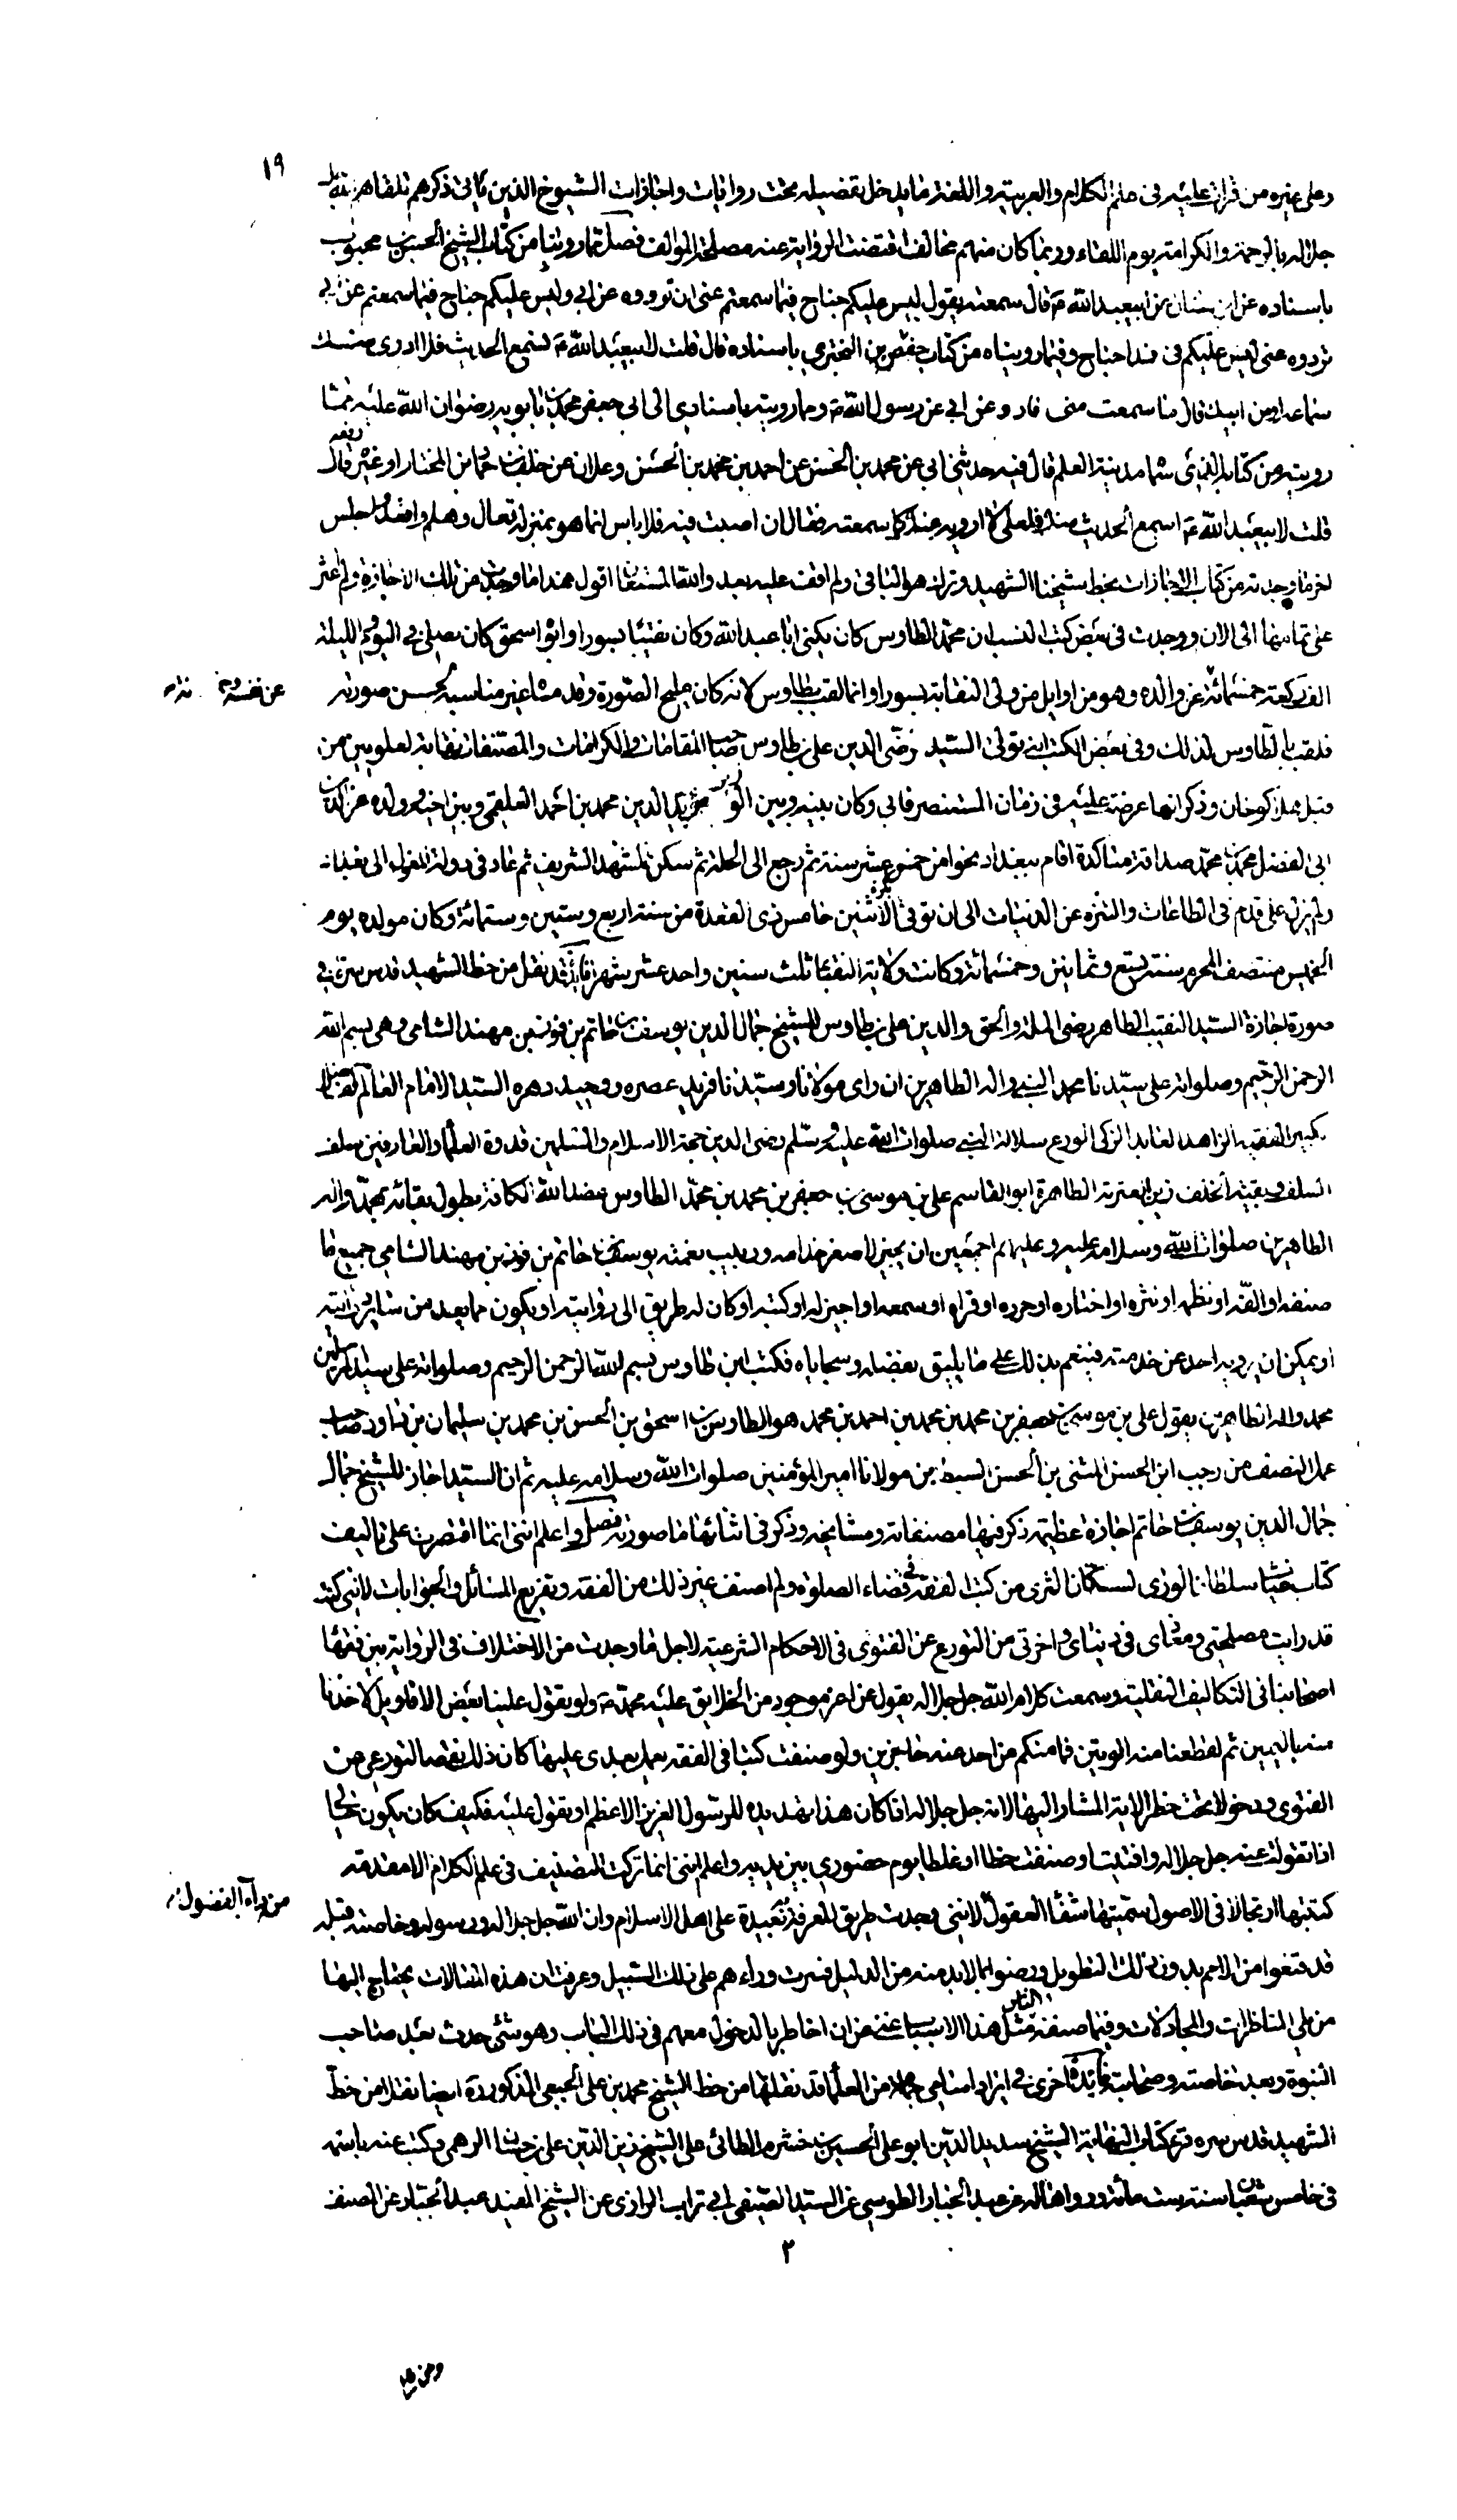 ١٩
وعلى غيره من قرات عليه في علم الكلام والعربية واللغة ما يدخل تفصيله تحت روايات واجازات الشيوخ الذين ياتي ذكرهم تلقاهم الله جل
جلاله بالرحمة والكرامة يوم اللقاء وربما كان منهم مخالف اقتضت الرواية عنه مصلحة للموالف فصل فمما رويناه من كتاب الشيخ الحسن بن محبوب
باسناده عن ابن سنان عن ابيعبد الله ع قال سمعته يقول ليس عليكم جناح فيما سمعتم عني ان ترووه عن ابي وليس عليكم جناح فيما سمعتم عن ابي
تردوه عني ليس عليكم في هذا جناح وفيما رويناه من كتاب حفص بن البختري باسناده قال قلت لابيعبد الله ع نسمع الحديث فلا ادري منك
سماعه او من ابيك قال ما سمعت مني فارو عن ابي عن رسول الله ص ومما رويته باسنادي الى ابي جعفر محمد بن بابويه رضوان الله عليه مما
رفعه
رويته من كتابه الذي سماه مدينة العلم قال فيه حدثني ابي عن محمد بن الحسن عن احمد بن محمد بن الحسن وعلان عن خلف بن حماد عن ابن المختار او غيره قال
قلت لابيعبد الله ع اسمع الحديث منك فلعلي لا ارويه عنك كما سمعته فقال ان اصبت فيه فلا باس انما هو بمنزلة تعال وهلم واقعد واجلس
اخر ما وجدته من كتاب الاجازات بخط شيخنا الشهيد وترك هو الباقي ولم اقف عليه بعد والله المستعان اقول هذا ما وجدت من تلك الاجازة ولم اعثر
على تمامها الى الان ووجدت في بعض كتب النسب ان محمد الطاوس كان يكنى ابا عبد الله وكان نقيبا بسورا وابو اسحق كان يصلي في اليوم والليلة
الف ركعة خمسمائة عن والده وهو من اوايل من ولي النقابة بسورا وانما لقب بطاوس لانه كان مليح الصورة وقدماه غير مناسبة لحسن صورته
عن نفسه و
فلقب بالطاوس لذلك وفي بعض الكتب انه تولى السيد رضي الدين علي بن طاوس صاحب المقامات والكرامات والمصنفات نقابة العلويين من
قبل هلاكو خان وذكر انها عرضت عليه في زمان المستنصر فابى وكان بينه وبين الوزير مؤيد الدين محمد بن احمد العلقمي وبين اخيه وولده عز الدين
ابي الفضل محمد بن محمد صداقة متاكدة اقام ببغداد نحوا من خمس عشر سنة ثم رجع الى الحلة ثم سكن بالمشهد الشريف ثم عاد في دولة المغول الى بغداد
ولم يزل على قدم في الطاعات والتنزه عن الدنيات الى ان توفي بكرة الاثنين خامس ذي القعدة من سنة اربع وستين وستمائة وكان مولده يوم
الخميس منتصف المحرم سنة تسع وثمانين وخمسمائة وكانت ولاية النقابة ثلث سنين واحد عشر شهرا فايدة نقل من خط الشهيد قدس سره في
صورة اجازة السيد النقيب الطاهر رضي الملة والحق والدين علي بن طاوس للشيخ جمال الدين يوسف بن حاتم بن فوز بن مهند الشامي وهي بسم الله
الرحمن الرحيم وصلواته على سيدنا محمد النبي واله الطاهرين ان راى مولانا وسيدنا فريد عصره ووحيد دهره السيد الامام العالم الفاضل
الكبير الفقيه الزاهد العابد الزكي الورع سلالة النبي صلوات الله عليه وسلم رضي الدين حجة الاسلام والمسلمين قدوة العلماء والعارفين سلف
السلف وبقية الخلف زين العترة الطاهرة ابو القاسم علي بن موسى بن جعفر بن محمد بن محمد الطاوس عضد الله الكافة بطول بقائه بمحمد واله
الطاهرين صلوات الله وسلامه عليه وعليهم اجمعين ان يجيز لاصغر خدامه وربيب نعمته يوسف بن حاتم بن فوز بن مهند الشامي جميع ما
صنفه او الفه او نظمه او نثره او اختاره او حرره او قراه او سمعه او اجيز له او كتبه او كان له طريق الى روايته او يكون مما يعد من ساير روايته
او يمكن ان يرويه احد عن خدمته فينعم بذلك على ما يليق بفضله وسجاياه فكتب ابن طاوس بسم الله الرحمن الرحيم وصلواته على سيد المرسلين
محمد واله الطاهرين يقول علي بن موسى بن جعفر بن محمد بن محمد بن احمد بن محمد هو الطاوس بن اسحق بن الحسن بن محمد بن سليمان بن داود صاحب
عمل النصف من رجب ابن الحسن المثنى بن الحسن السبط بن مولانا امير المؤمنين صلوات الله وسلامه عليه ثم ان السيد اجاز للشيخ جمال
جمال الدين يوسف بن حاتم اجازة عظيمة ذكر فيها مصنفاته ومشايخه وذكر في اثنائها ما صورته فصل واعلم انني انما اقتصرت على تاليف
كتاب غياث سلطان الورى لسكان الثرى من كتب الفقه في قضاء الصلوة ولم اصنف غير ذلك من الفقه وتفريع المسائل والجوابات لانني كنت
قد رايت مصلحتي ومعاذي في دنياي واخرتي من التورع عن الفتوى في الاحكام الشرعية لاجل ما وجدت من الاختلاف في الرواية بين فقهاء
اصحابنا في التكاليف النقلية وسمعت كلام الله جل جلاله يقول عن اعز موجود من الخلايق عليه محمد ص ولو تقول علينا بعض الاقاويل لاخذنا
منه باليمين ثم لقطعنا منه الوتين فما منكم من احد عنه حاجزين ولو صنفت كتبا في الفقه يعمل بعدي عليها كان ذلك نقضا لتورعي عن
الفتوى ودخولا تحت خطر الاية المشار اليها لانه جل جلاله اذا كان هذا تهديده للرسول العزيز الاعظم او تقول عليه فكيف كان يكون حالي
اذا تقولت عنه جل جلاله وافتيت او صنفت خطا او غلطا يوم حضوري بين يديه واعلم انني انما تركت التصنيف في علم الكلام الا مقدمة
كتبتها ارتجالا في الاصول سميتها شفاء العقول لانني وجدت طريق المعرفة بعيدة على اهل الاسلام وان الله جل جلاله ورسوله وخاصته قبله
من داء الفضول
قد قنعوا من الامم بدون ذلك التطويل ورضوا بما لابد منه من الدليل فسرت وراءهم على ذلك السبيل وعرفت ان هذه المقالات يحتاج اليها
من يلي المناظرات والمجادلات وفيما صنفه الناس مثل هذا الاسباب غنى عن ان اخاطر بالدخول معهم في ذلك الباب وهو شئ حدث بعد صاحب
النبوة وبعد خاصته وصحابته فائدة اخرى في ايراد اسامي جملة من العلماء قد نقلتها من خط الشيخ محمد بن علي الجبعي المذكور ره ايضا نقلا من خط
الشهيد قدس سره قرء كتاب النهاية الشيخ سديد الدين ابو علي الحسين بن خشرم الطائي على الشيخ زين الدين علي بن حسان الرهمي وكتب عنه باسمه
في خامس شعبان سنة ست مائة ورواها له عن عبد الجبار الطوسي عن السيد الصفي ابي تراب الرازي عن الشيخ المفيد عبد الجبار عن المصنف
٢